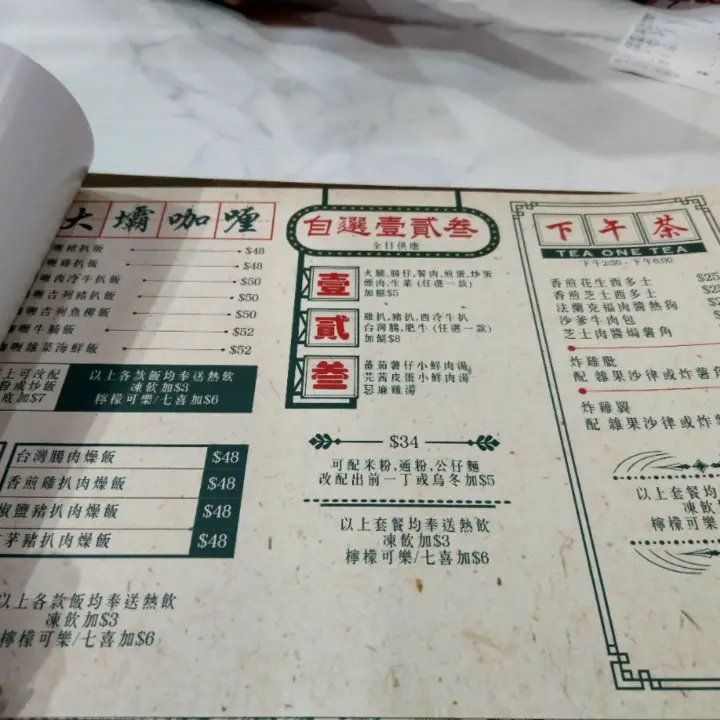 大壩咖喱
豬扒飯 $48
雞扒飯 $48
西冷牛扒飯 $50
吉列豬扒飯 $50
吉列魚柳飯 $50
牛腩飯 $52
雜菜海鮮飯 $52
上可改配
粉或炒飯
底加$7
以上各款飯均奉送熱飲
凍飲加$3
檸檬可樂/七喜加$6
台灣腸肉燥飯 $48
香煎雞扒肉燥飯 $48
椒鹽豬扒肉燥飯 $48
茅豬扒肉燥飯 $48
以上各款飯均奉送熱飲
凍飲加$3
檸檬可樂/七喜加$6
自選壹貳叁
全日供應
壹
火腿,腸仔,餐肉,煎蛋,炒蛋
煙肉,生菜 (任選一款)
加餸$5
貳
雞扒,豬扒,西冷牛扒
台灣腸,肥牛 (任選一款)
加餸$8
叁
蕃茄薯仔小鮮肉湯
芫茜皮蛋小鮮肉湯
忌廉雞湯
$34
可配米粉,通粉,公仔麵
改配出前一丁或烏冬加$5
以上套餐均奉送熱飲
凍飲加$3
檸檬可樂/七喜加$6
下午茶
TEA ONE TEA
下午2:30 - 下午6:00
香煎花生西多士
香煎芝士西多士
法蘭克福肉醬熱狗
沙爹牛肉包
芝士肉醬焗薯角
炸雞髀
配 雜果沙律或炸薯角
炸雞翼
配 雜果沙律或炸
以上套餐均
凍飲
檸檬可樂